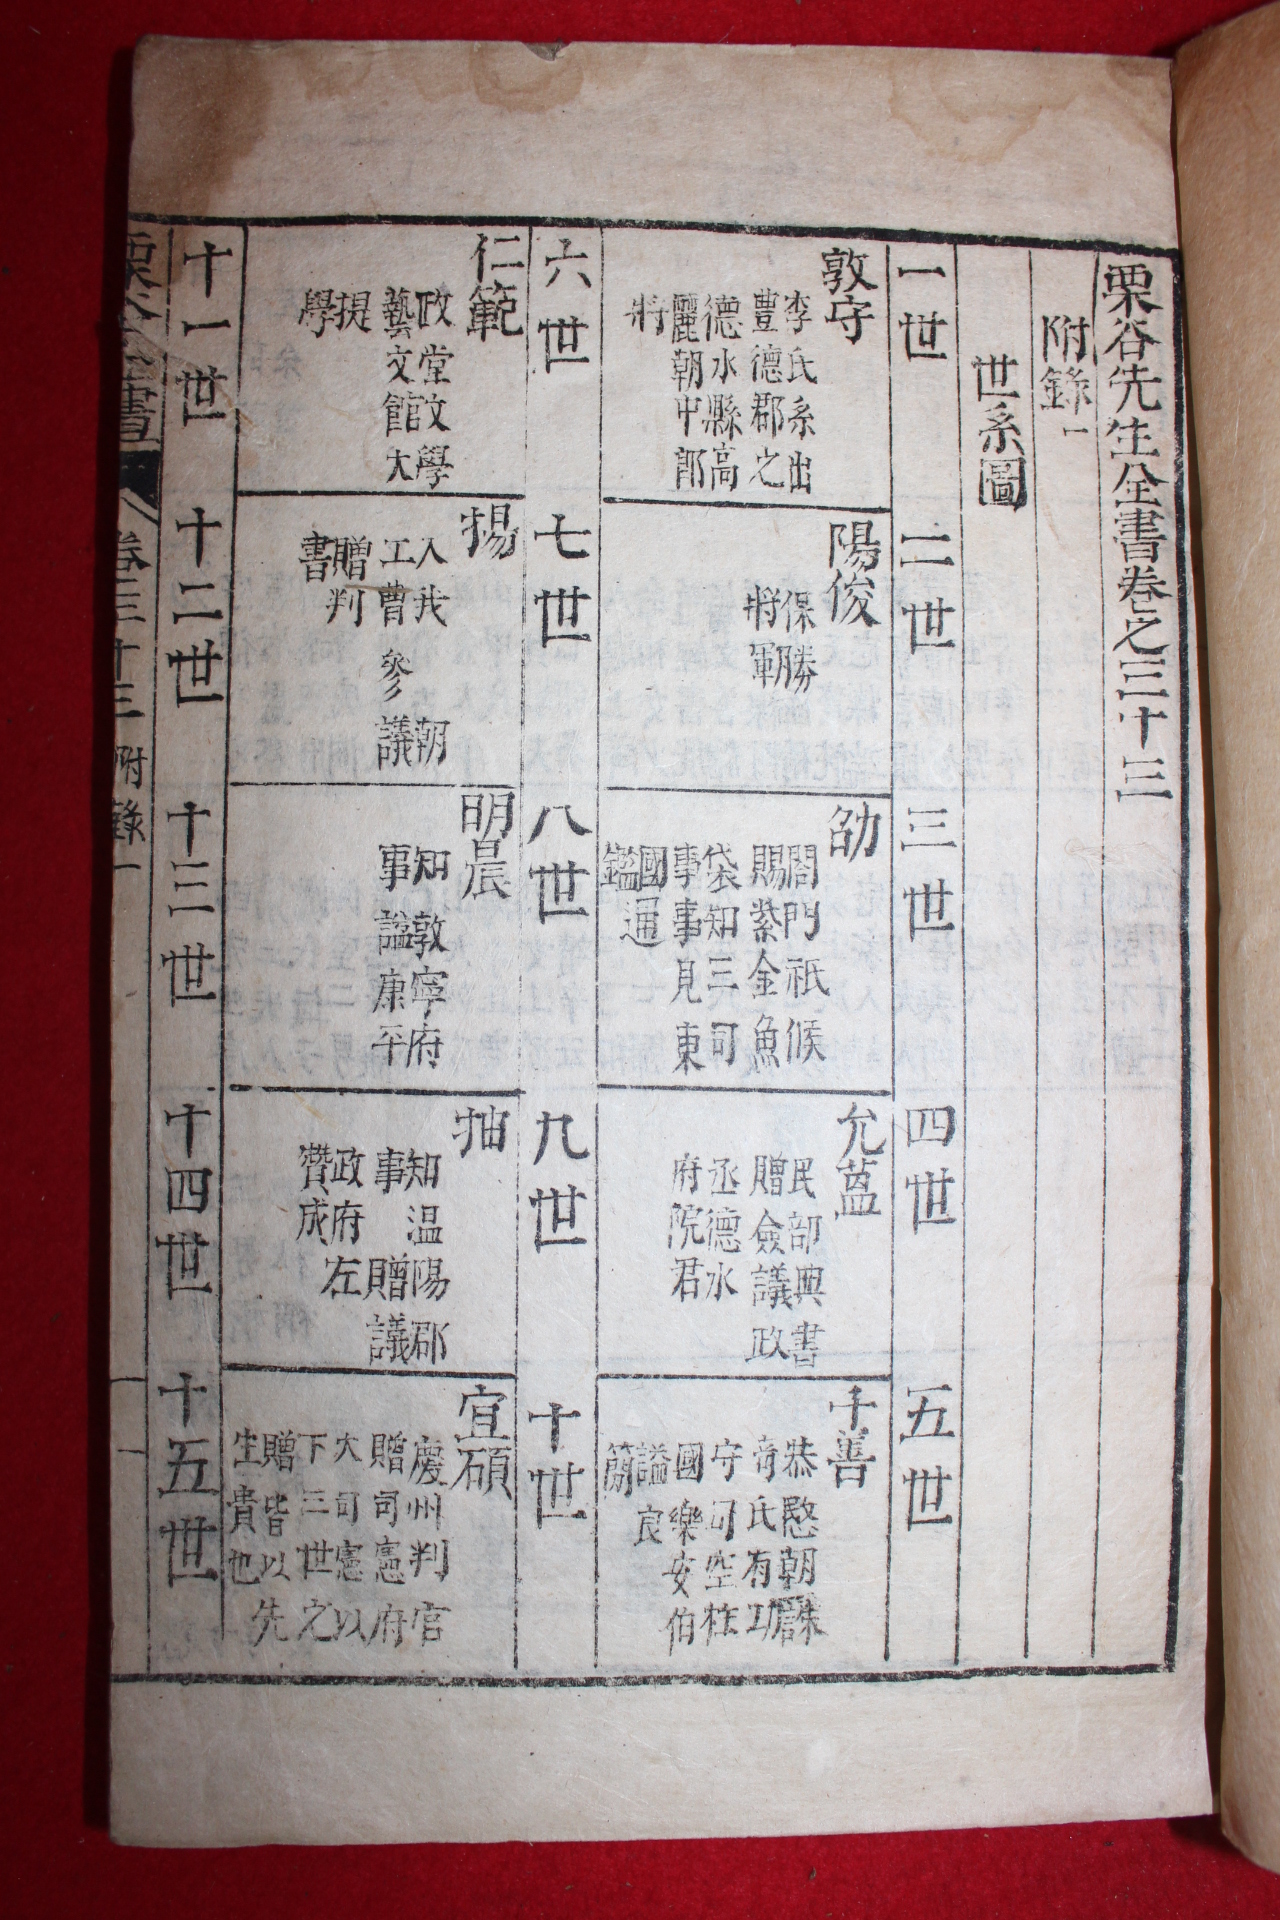 栗谷先生全書卷之三十三
附錄一
世系圖
一世
二世
三世
四世
五世
敦守
李氏系出
豊德郡之
德水縣高
麗朝中郎
將
陽俊
保勝
將軍
劭
閤門祗候
賜紫金魚
袋知三司
事事見東
國通
鑑
允蒕
民部典書
贈僉議政
丞德水
府院君
千善
恭愍朝誅
奇氏有功
守司空柱
國樂安伯
謚良
簡
六世
七世
八世
九世
十世
仁範
政堂文學
藝文館大
提
學
揚
入我 朝
工曹參議
贈判
書
明晨
知敦寧府
事謚康平
抽
知温陽郡
事 贈議
政府左
贊成
宜碩
慶州判官
贈司憲府
大司憲以
下三世之
贈皆以先
生貴也
十一世
十二世
十三世
十四世
十五世
栗谷全書
卷三十三 附錄一
一